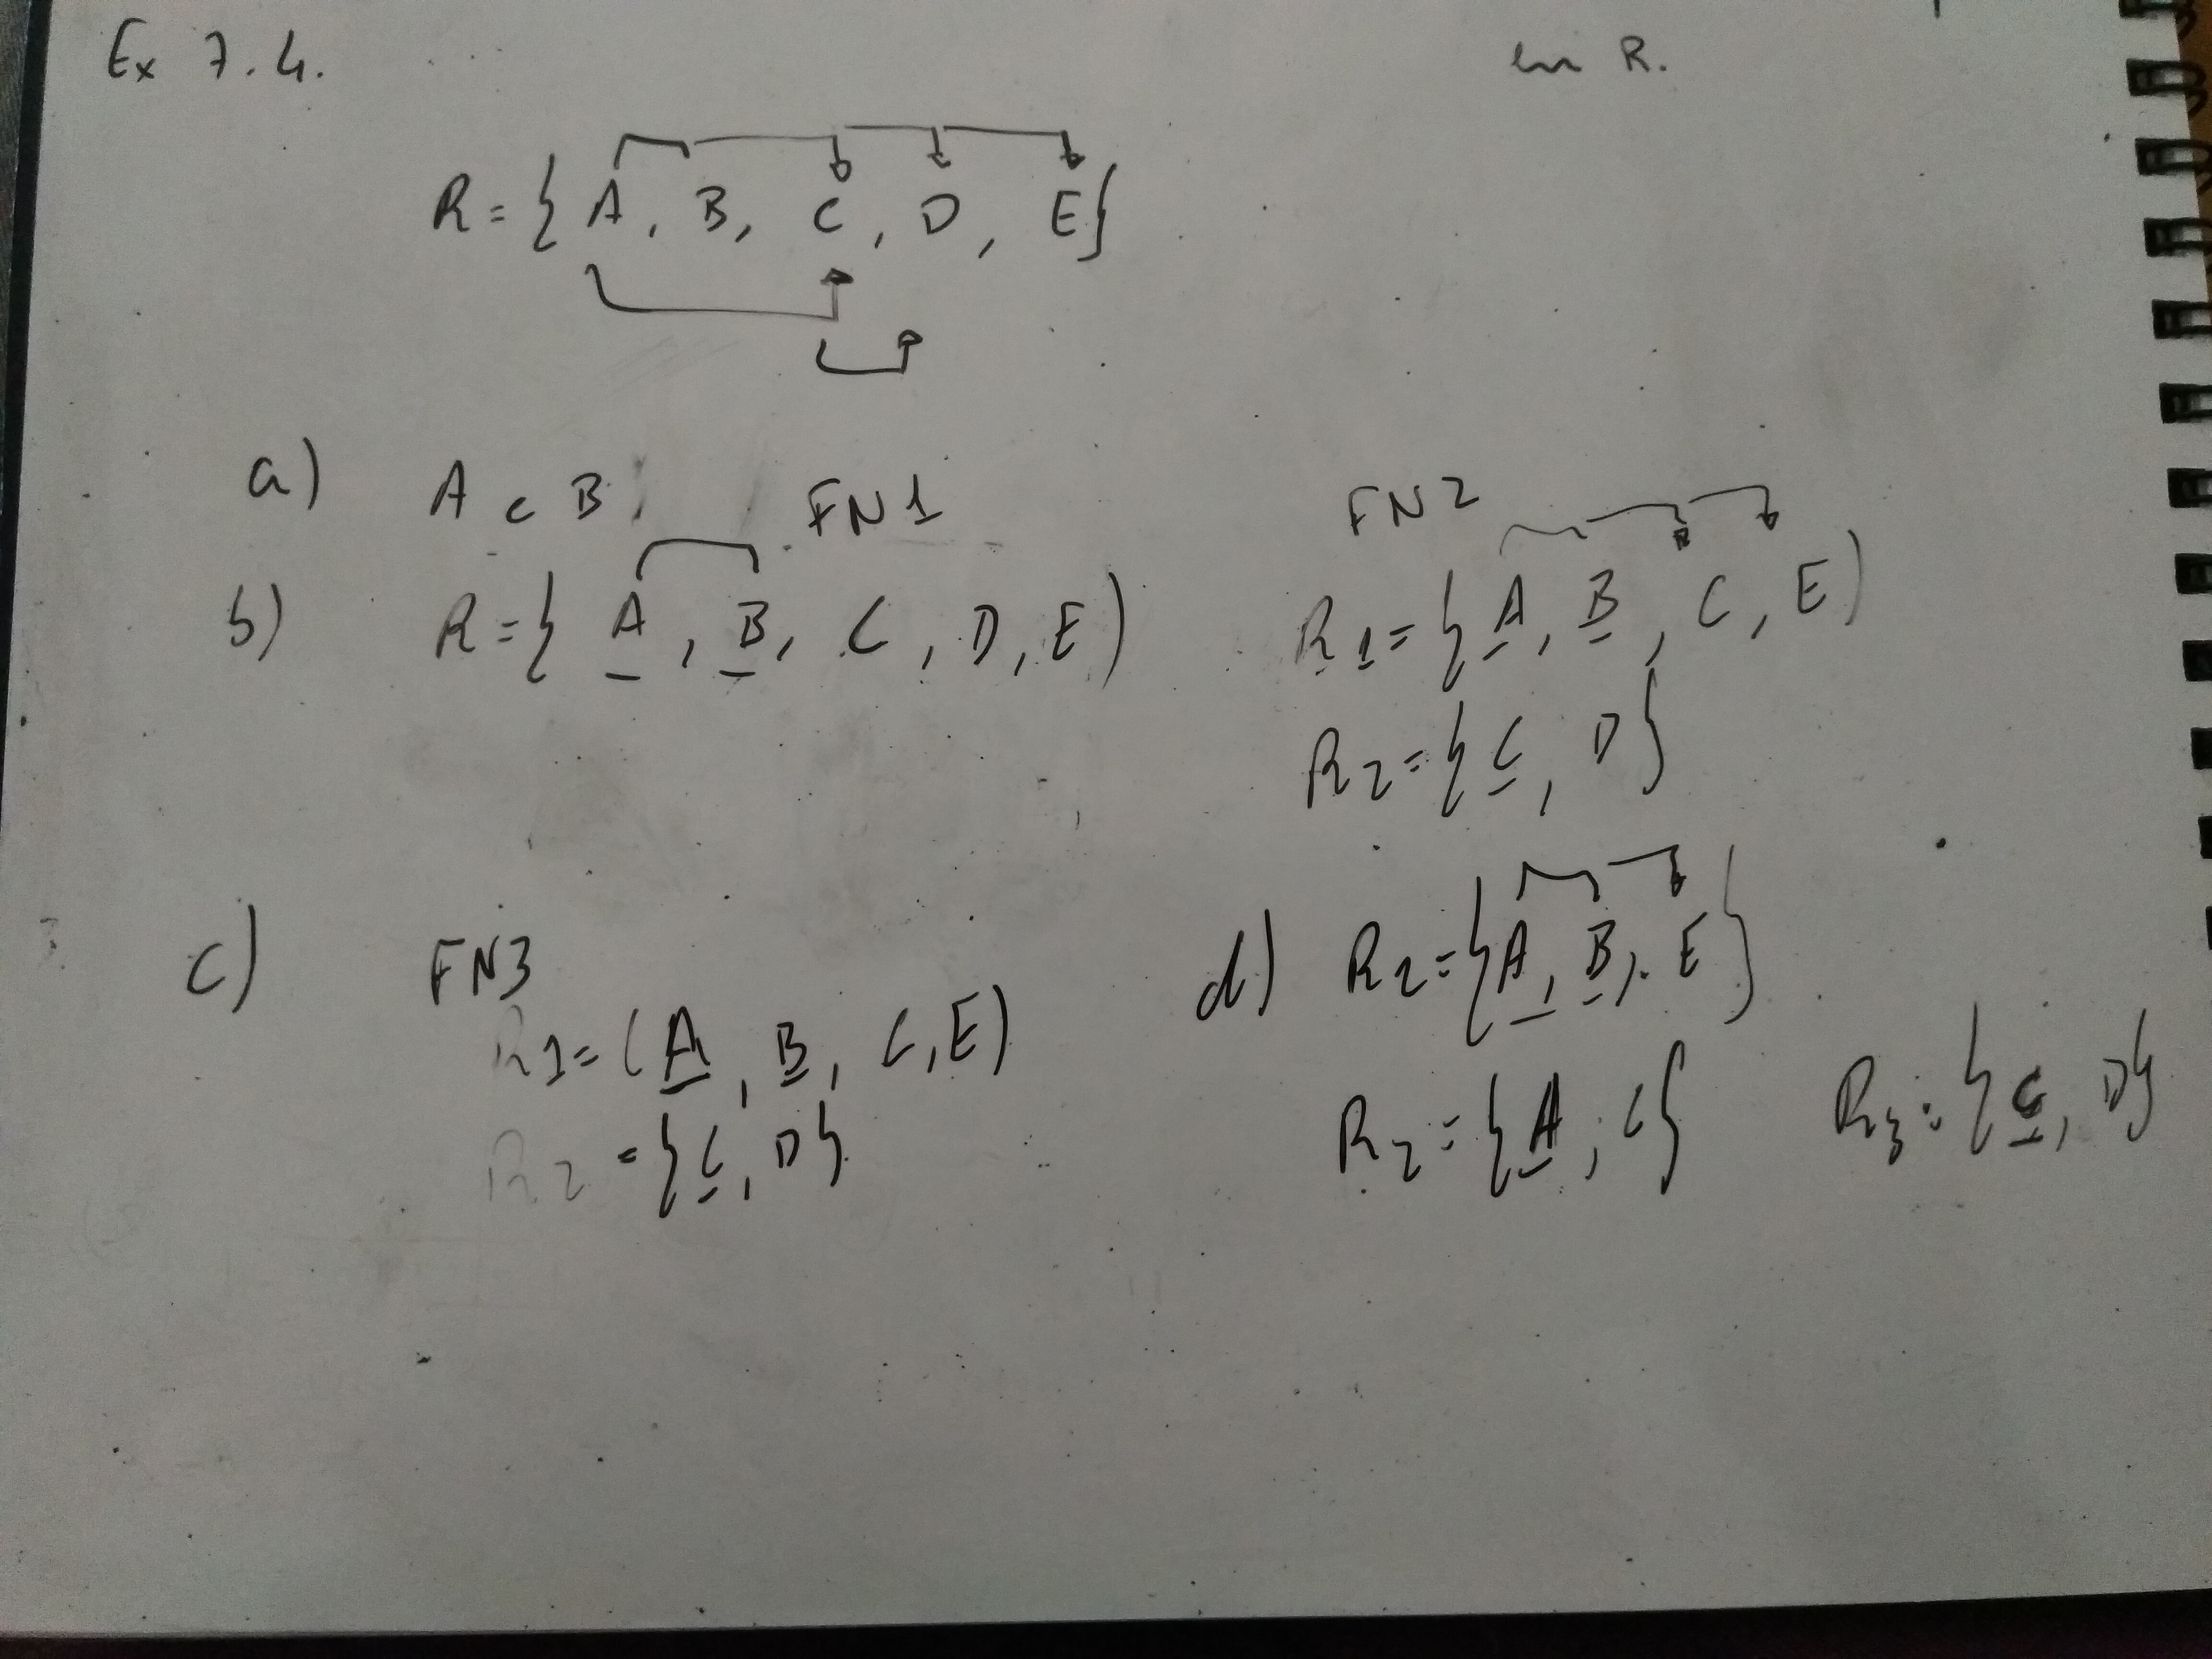 Ex 7.4.
en R.
R = { A, B, C, D, E}
a) A c B
FN1
FN2
b) R = { A, B, C, D, E)
R1 = { A, B, C, E)
R2 = { C, D}
c) FN3
R1 = (A, B, C, E)
R2 = { C, D}
d) R2 = { A, B, E }
R2 = { A, C}
R3 = { C, D}